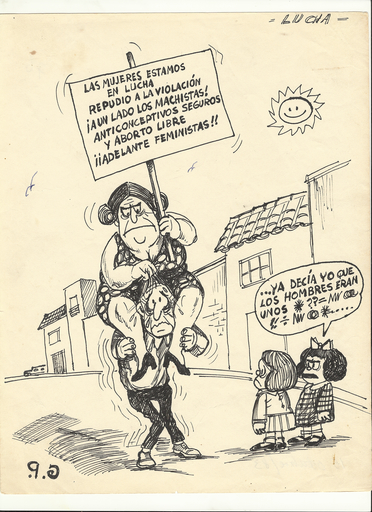 = LUCHA =
LAS MUJERES ESTAMOS
EN LUCHA
REPUDIO A LA VIOLACIÓN
¡A UN LADO LOS MACHISTAS!
ANTICONCEPTIVOS SEGUROS
Y ABORTO LIBRE
¡¡ADELANTE FEMINISTAS!!
...YA DECÍA YO QUE
LOS HOMBRES ERAN
UNOS
G.P.